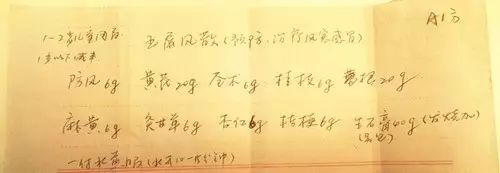 A1方
1-2岁儿童用量 玉屏风散(预防、治疗风寒感冒)
1岁以下减半
防风6g 黄芪20g 仓术6g 桂枝6g 葛根20g
麻黄6g 炙甘草6g 杏仁6g 桔梗6g 生石膏40g(发烧加)
一付水煎服(水开10-15分钟)